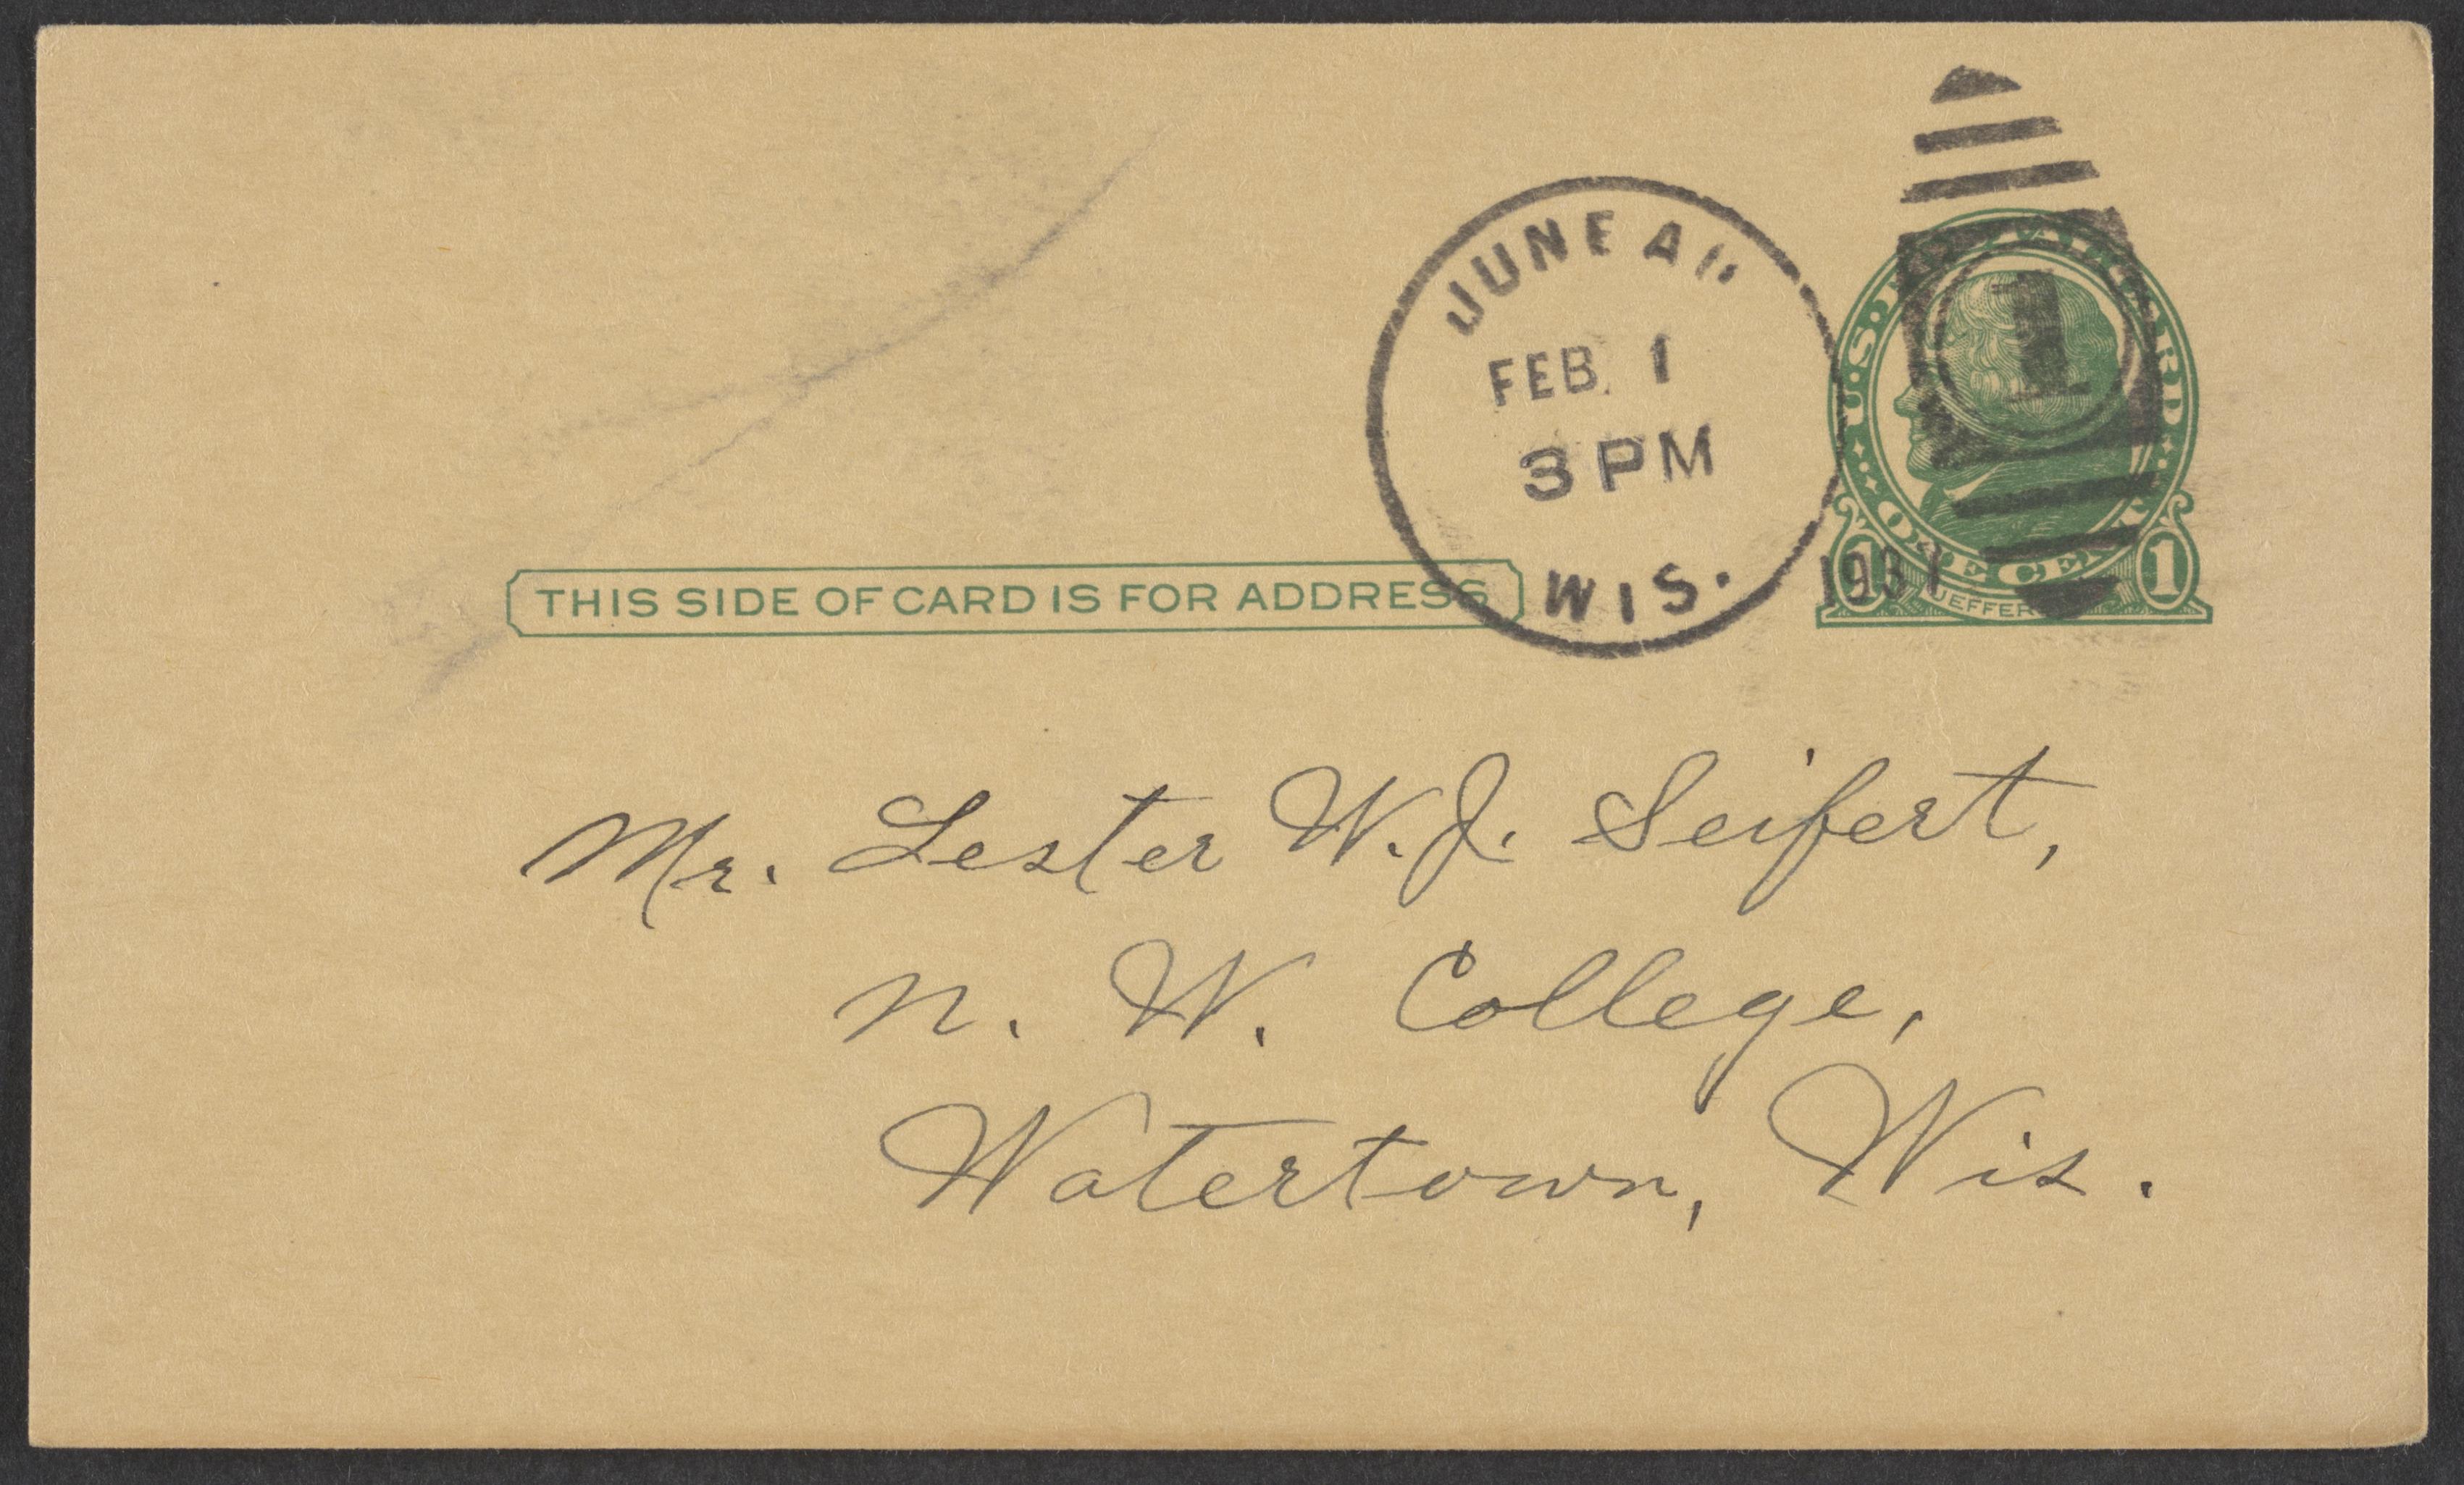 JUNEAU
FEB. 1
3 PM
WIS.
1937
U.S. POSTAL CARD
ONE CENT
1 1
JEFFERSON
1
THIS SIDE OF CARD IS FOR ADDRESS
Mr. Lester W. J. Seifert,
N. W. College,
Watertown, Wis.